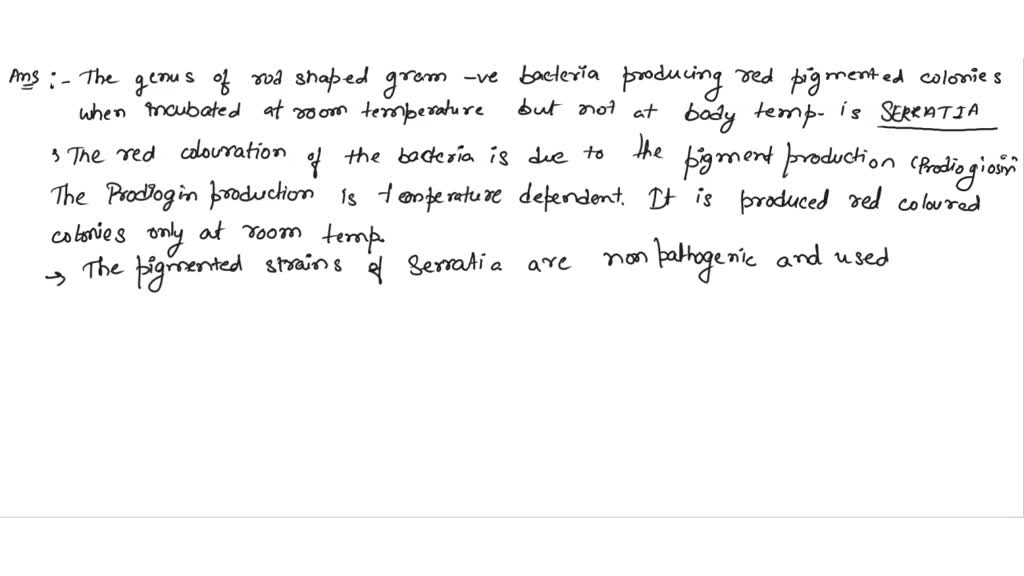 Ans :- The genus of rod shaped gram -ve bacteria producing red pigmented colonies
when incubated at room temperature but not at body temp. is SERRATIA
→ The red colouration of the bacteria is due to the pigment production (Prodiogiosin)
The Prodiogin production is temperature dependent. It is produced red coloured
colonies only at room temp.
→ The pigmented strains of Serratia are non pathogenic and used